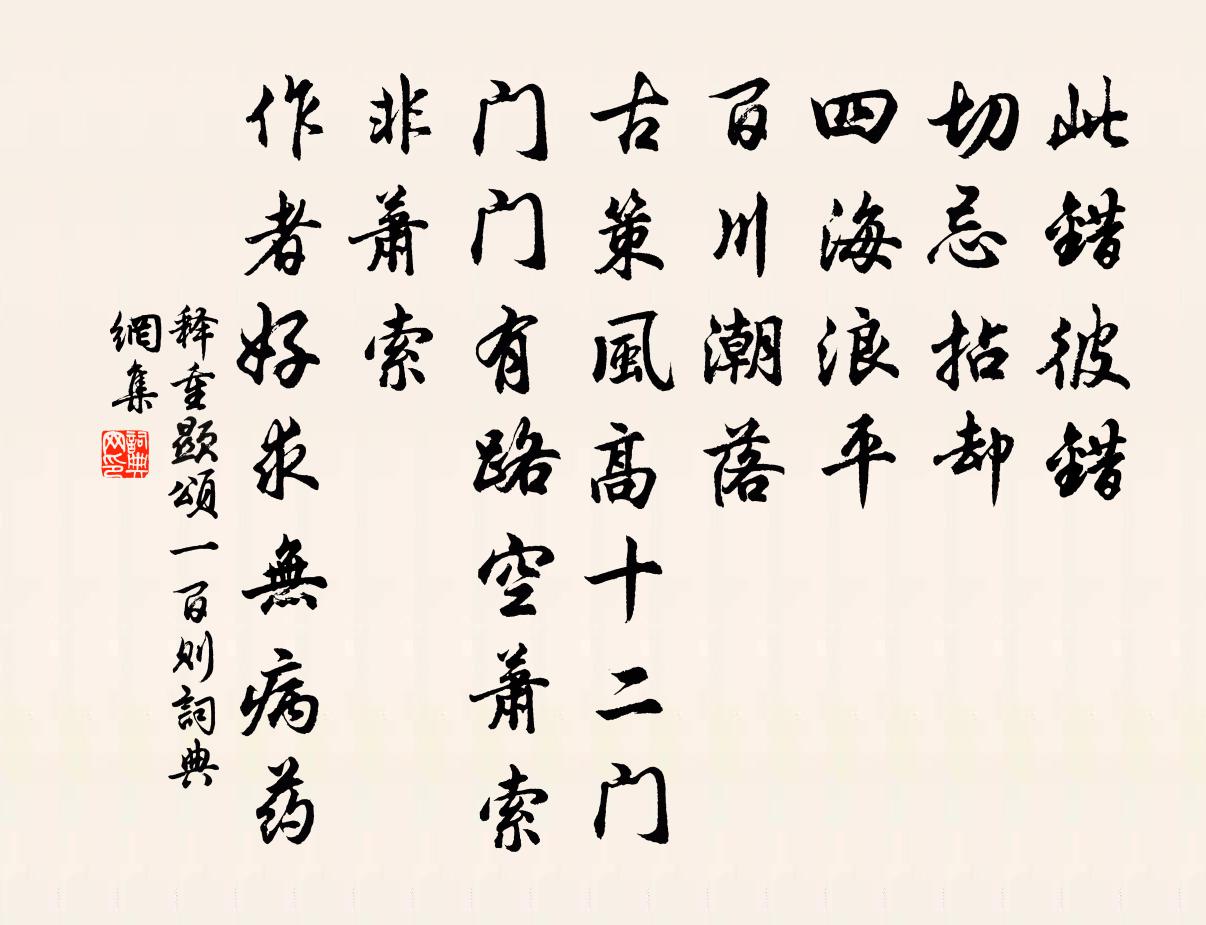 此錯彼錯
切忌拈却
四海浪平
百川潮落
古策風高十二门
门门有路空萧索
非萧索
作者好求無病药
释重顯頌一百则詞典
網集
詞典
网印